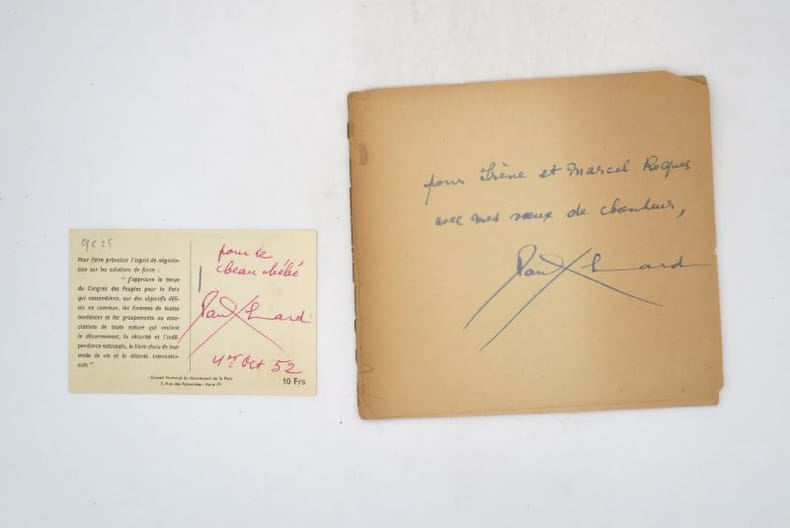 9c25
Pour faire prévaloir l'esprit de négocia-
tion sur les solutions de force :
— J'approuve la tenue
du Congrès des Peuples pour la Paix
qui rassemblera, sur des objectifs défi-
nis en commun, les hommes de toutes
tendances et les groupements ou asso-
ciations de toute nature qui veulent
le désarmement, la sécurité et l'indé-
pendance nationale, le libre choix de leur
mode de vie et la détente internatio-
nale".
pour le
beau bébé
Paul Eluard
Oct 52
Conseil National du Mouvement de la Paix
Rue des Pyramides - Paris
10 Frs
pour Irène et Marcel Roques
avec mes vœux de bonheur,
Paul Eluard